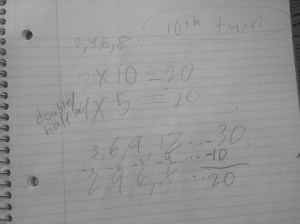 10th turn
2, 4, 6, 8...
2 X 10 = 20
double/
half
4 X 5 = 20
3, 6, 9, 12 ... 30
-1 -2 -3 -4 ... -10
2, 4, 6, 8 ... 20